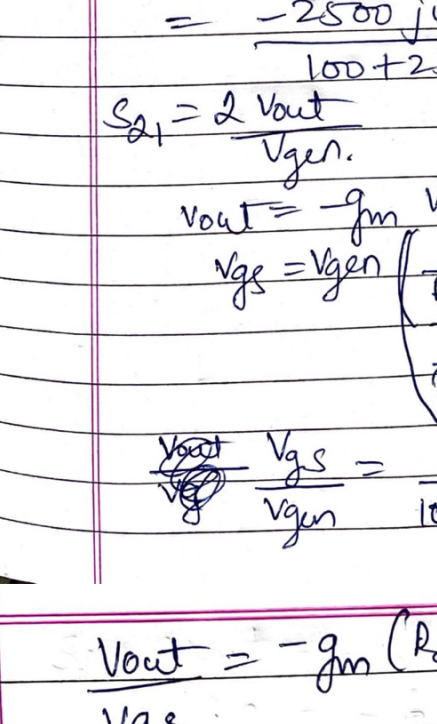 = -2500 j
100 + 2
S21 = 2 Vout
Vgen.
Vout = -gm V
Vgs = Vgen (
Vgs =
Vgen 10
Vout = -gm (R
Vgs